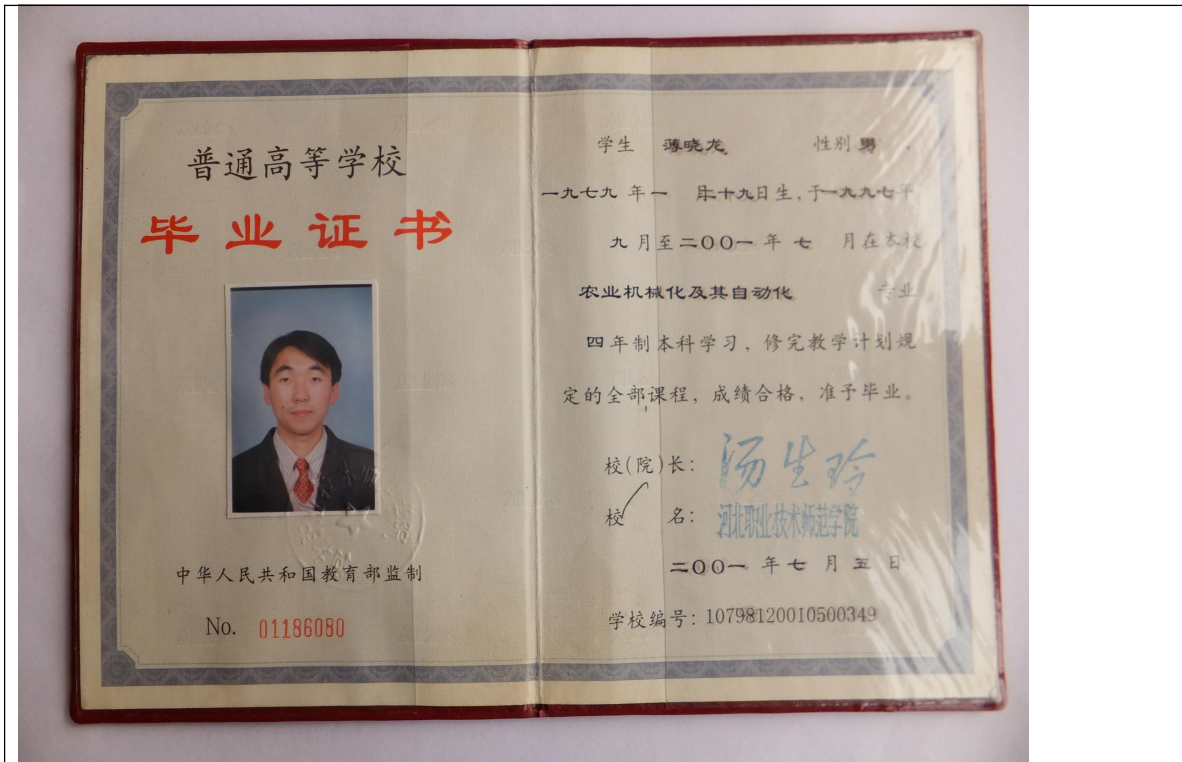 普通高等学校
毕业证书
中华人民共和国教育部监制
No. 01186080
学生 薄晓龙 性别 男
一九七九 年 一 月二十九日生, 于一九九七年
九 月至二〇〇一 年 七 月在本校
农业机械化及其自动化 专业
四年制本科学习, 修完教学计划规
定的全部课程, 成绩合格, 准予毕业。
校(院)长: 汤生玲
校 名: 河北职业技术师范学院
二〇〇一 年 七 月 五 日
学校编号: 10798120010500349